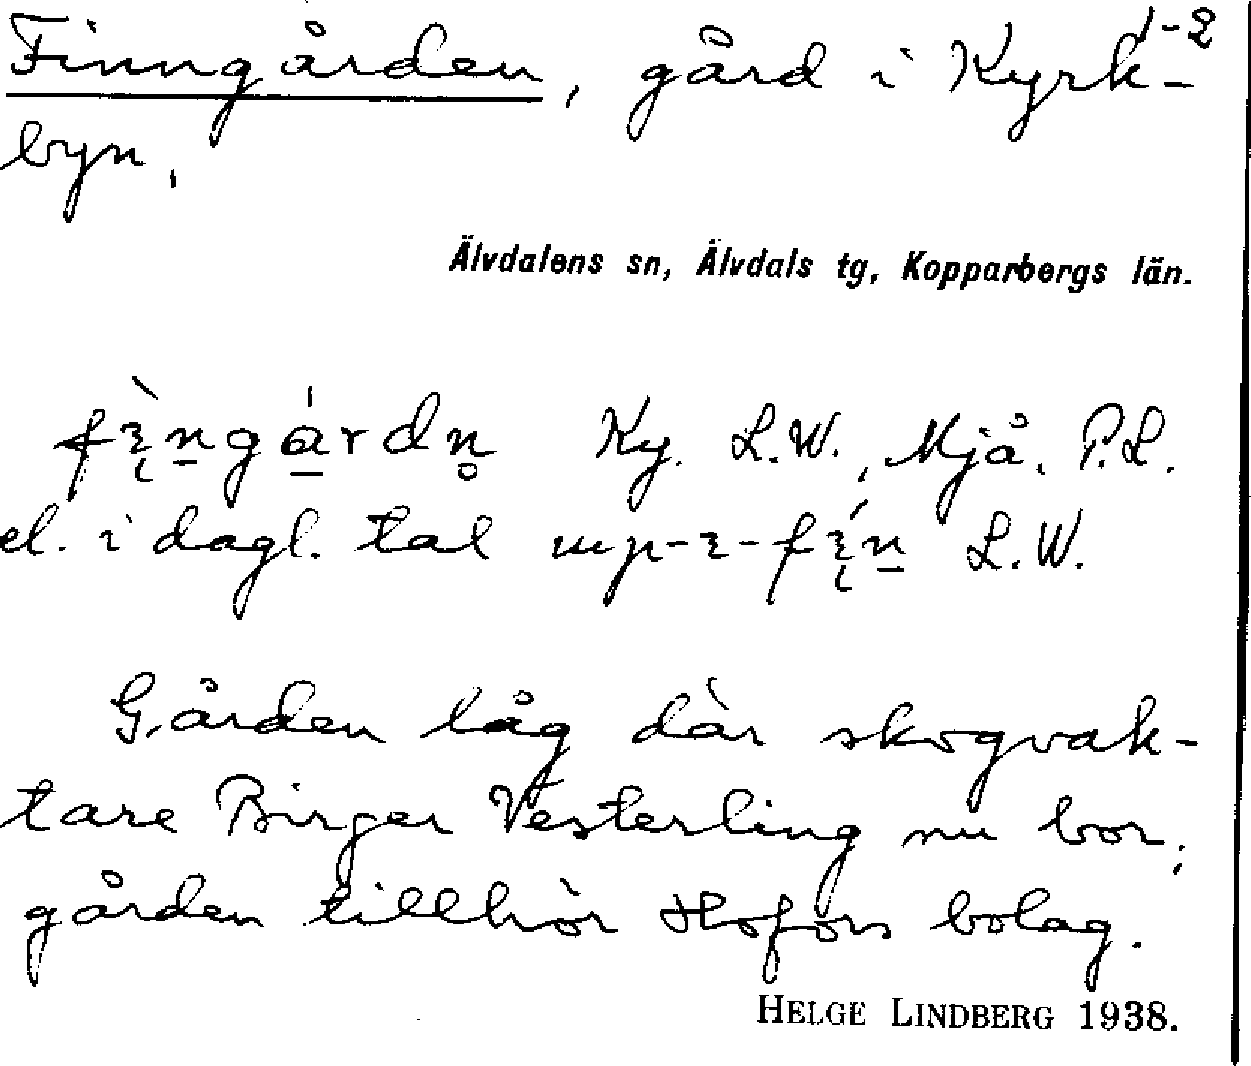 1-2
Finngården, gård i Kyrk-
byn.
Älvdalens sn, Älvdals tg, Kopparbergs län.
Ky. L.W., Mjå. P.L.
el. i dagl. tal L.W.
Gården låg där skogvak-
tare Birger Vesterling nu bor;
gården tillhör Hofors bolag.
HELGE LINDBERG 1938.